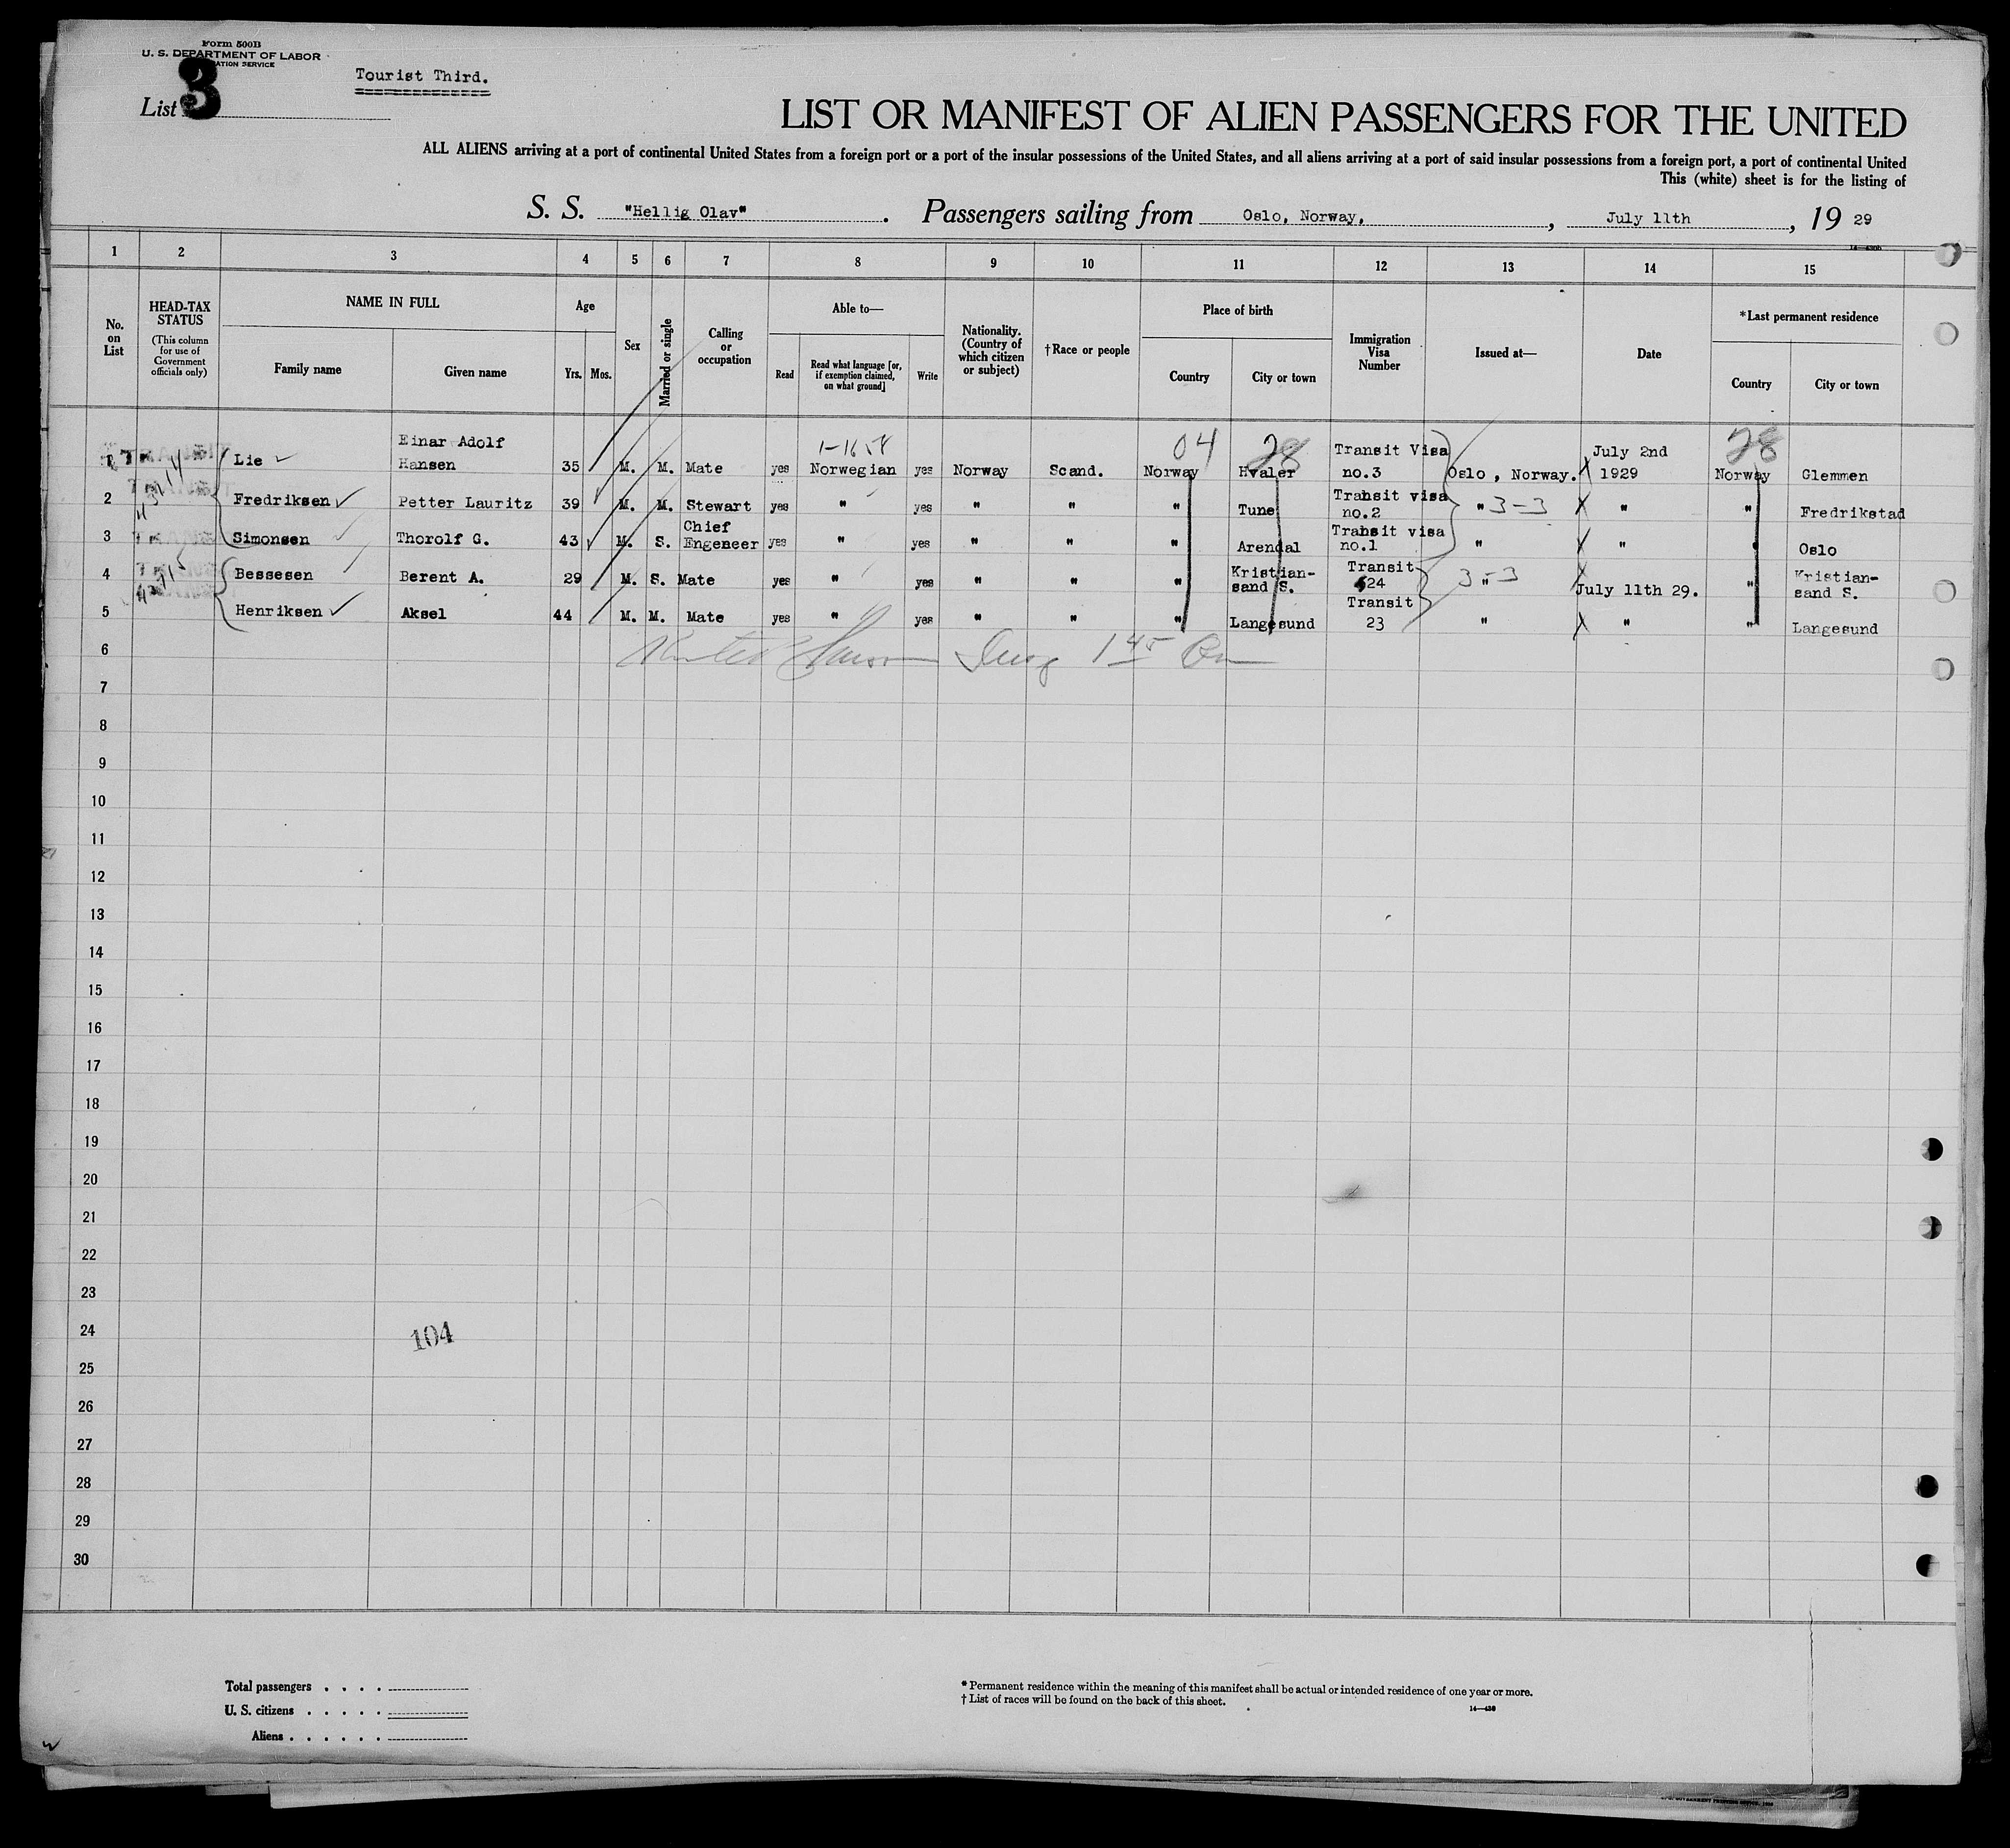 Form 500B
U. S. DEPARTMENT OF LABOR
List 3
Tourist Third.
LIST OR MANIFEST OF ALIEN PASSENGERS FOR THE UNITED
ALL ALIENS arriving at a port of continental United States from a foreign port or a port of the insular possessions of the United States, and all aliens arriving at a port of said insular possessions from a foreign port, a port of continental United
This (white) sheet is for the listing of
S. S. "Hellig Olav". Passengers sailing from Oslo, Norway, , July 11th , 19 29
1 2 3 4 5 6 7 8 9 10 11 12 13 14 15
No. on List
HEAD-TAX STATUS (This column for use of Government officials only)
NAME IN FULL
Family name Given name
Age
Yrs. Mos.
Sex
Married or single
Calling or occupation
Able to—
Read Read what language [or, if exemption claimed, on what ground] Write
Nationality. (Country of which citizen or subject)
†Race or people
Place of birth
Country City or town
Immigration Visa Number
Issued at—
Date
*Last permanent residence
Country City or town
1 Lie Einar Adolf Hansen 35 M. M. Mate yes Norwegian yes Norway Scand. Norway Hvaler Transit Visa no.3 Oslo , Norway. July 2nd 1929 Norway Glemmen
04 28 28
2 Fredriksen Petter Lauritz 39 M. M. Stewart yes " yes " " " Tune Transit visa no.2 " 3-3 " " Fredrikstad
3 Simonsen Thorolf G. 43 M. S. Chief Engeneer yes " yes " " " Arendal Transit visa no.1 " " " Oslo
4 Bessesen Berent A. 29 M. S. Mate yes " yes " " " Kristian-sand S. Transit 24 3 " -3 July 11th 29. " Kristian-sand S.
5 Henriksen Aksel 44 M. M. Mate yes " yes " " " Langesund Transit 23 " " " Langesund
6
7
8
9
10
11
12
13
14
15
16
17
18
19
20
21
22
23
24
104
25
26
27
28
29
30
Total passengers . . . .
U. S. citizens . . . . .
Aliens . . . . . .
* Permanent residence within the meaning of this manifest shall be actual or intended residence of one year or more.
† List of races will be found on the back of this sheet.
14—430